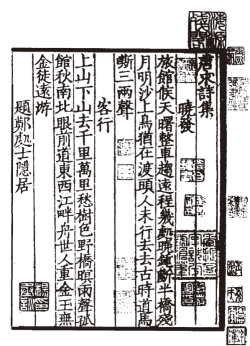 唐求詩集
曉發
旅館候天曙整車趍遠程幾處曉鍾斷半橋殘
月明沙上鳥猶在渡頭人未行去去古時道馬
嘶三兩聲
客行
上山下山去千里萬里愁樹色野橋暝雨聲孤
館秋南北眼前道東西江畔舟世人重金玉無
金徒遠游
題鄭處士隱居